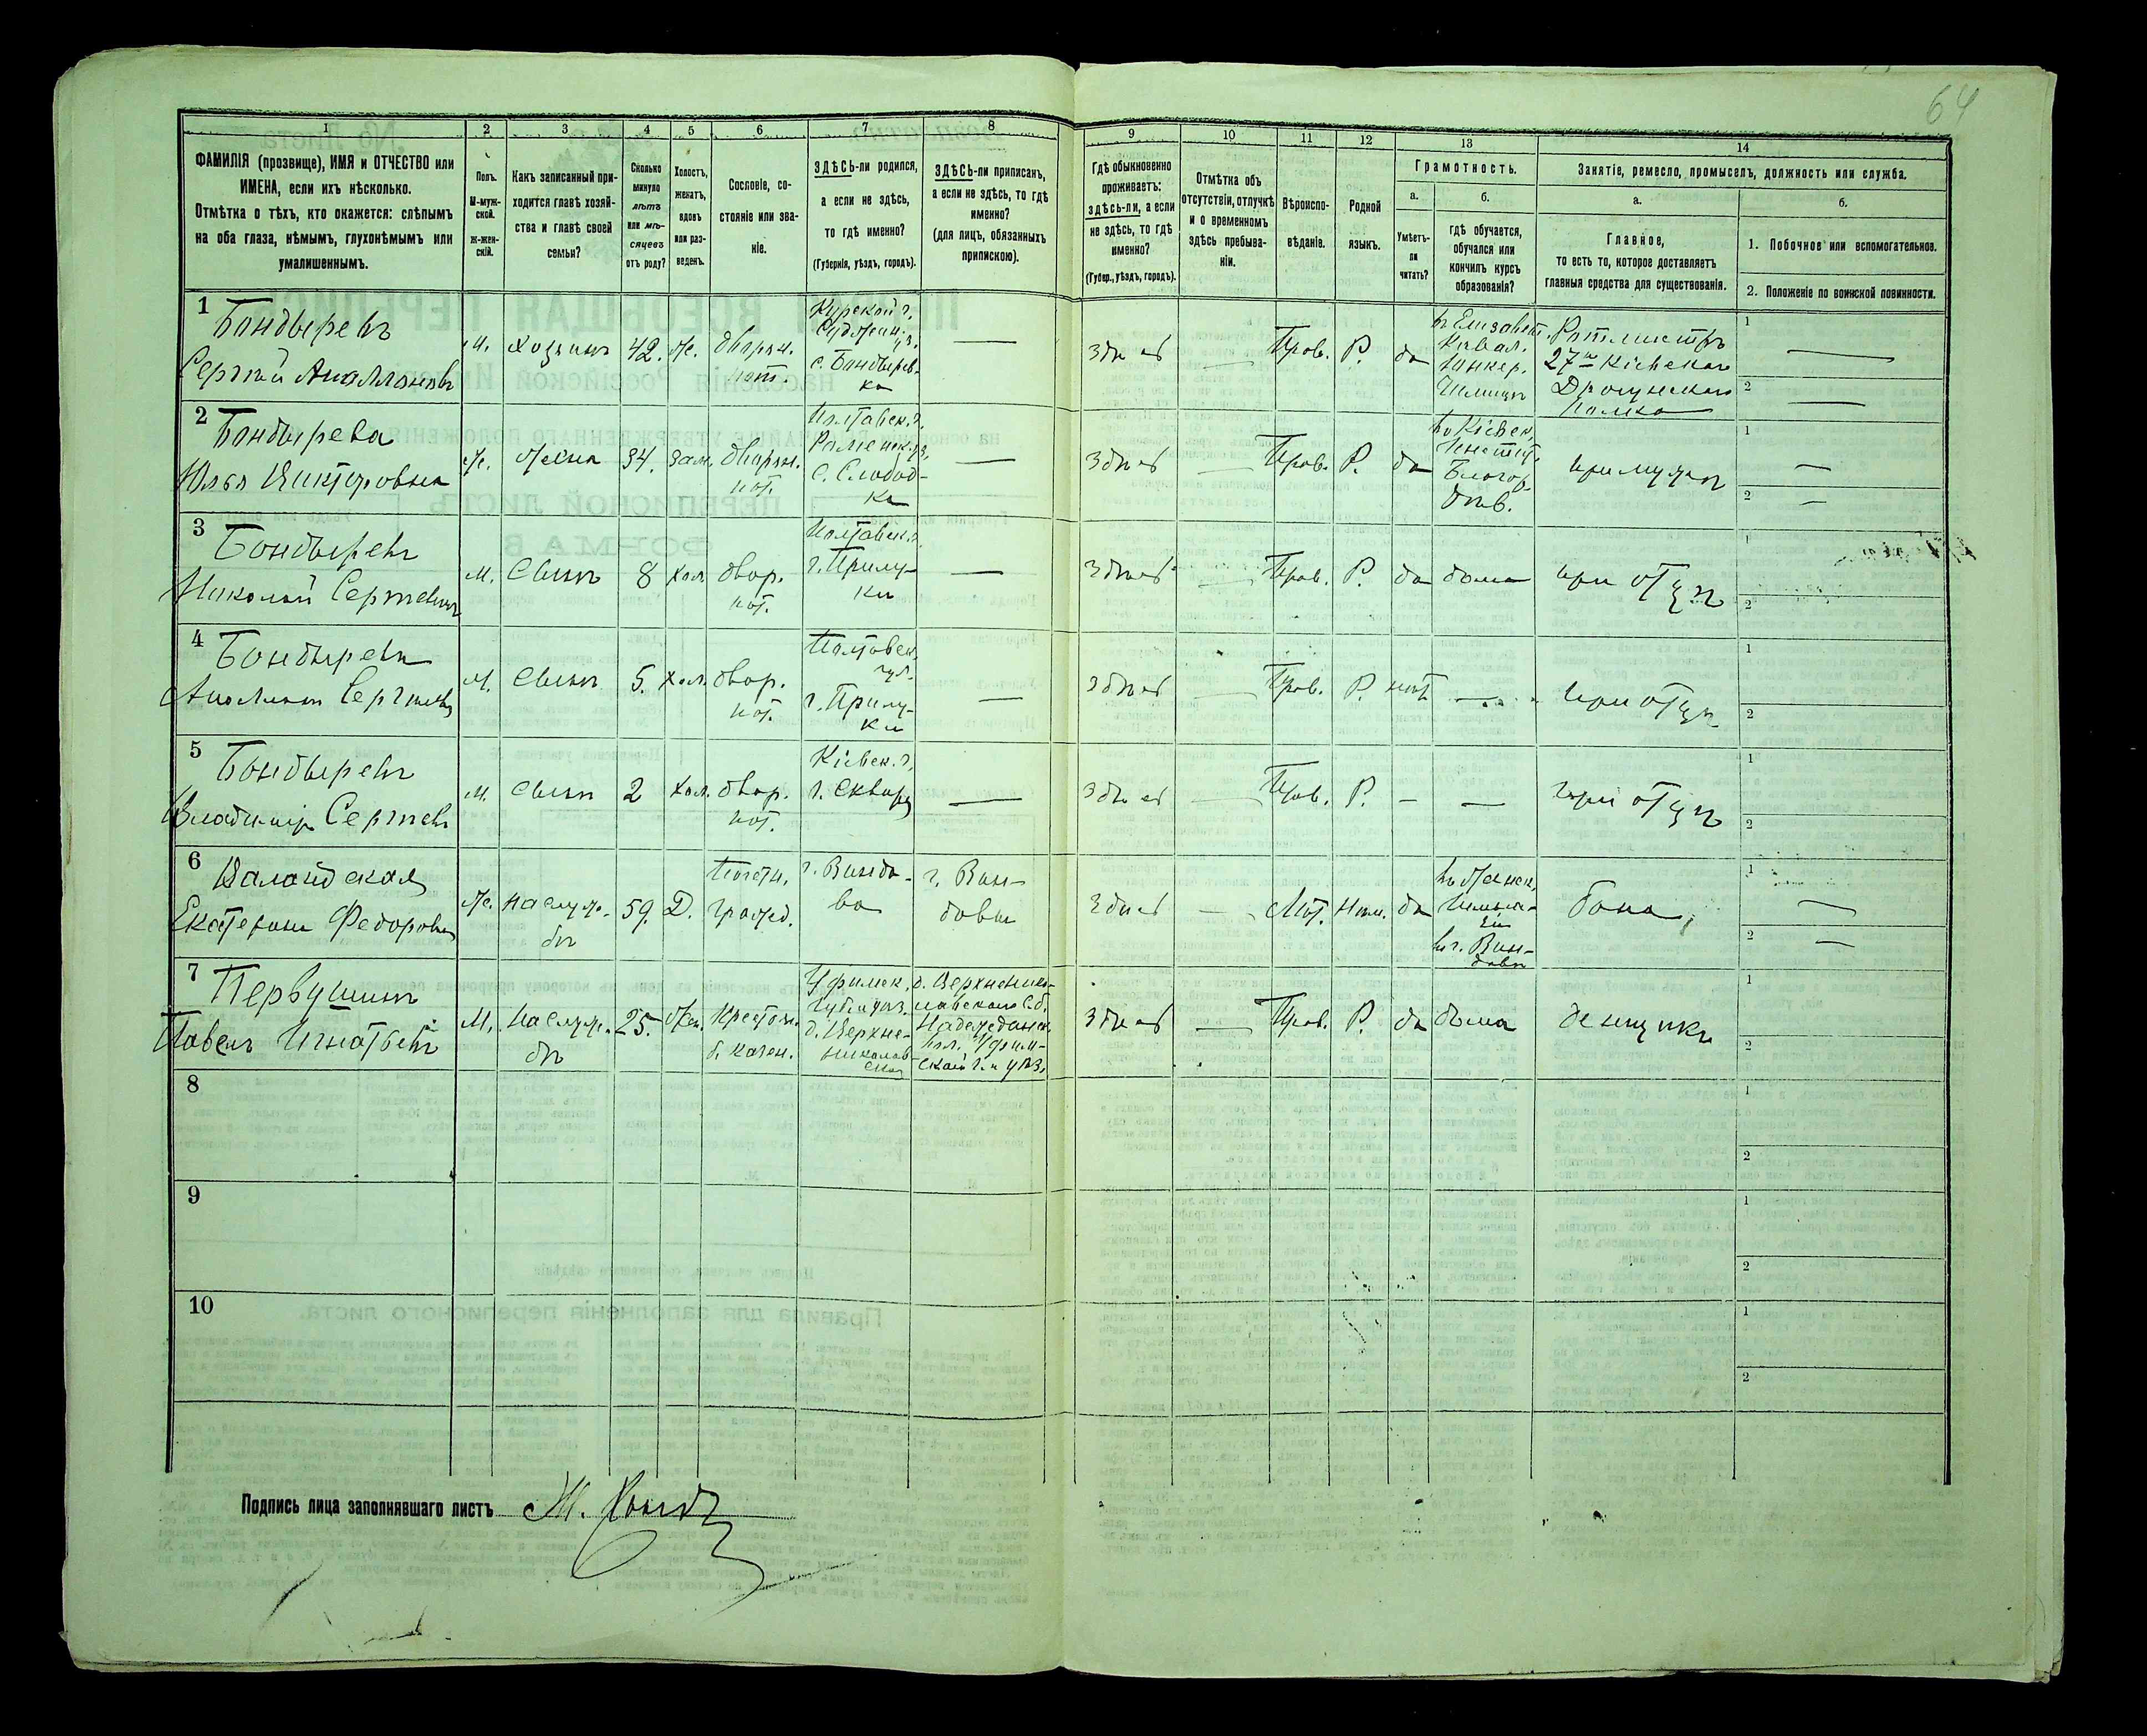 64
1 2 3 4 5 6 7 8 9 10 11 12 13 14
ФАМИЛІЯ (прозвище), ИМЯ и ОТЧЕСТВО или
ИМЕНА, если ихъ нѣсколько.
Отмѣтка о тѣхъ, кто окажется: слѣпымъ
на оба глаза, нѣмымъ, глухонѣмымъ или
умалишеннымъ.
Полъ.
М-муж-
ской.
Ж-жен-
скій.
Какъ записанный при-
ходится главѣ хозяй-
ства и главѣ своей
семьи?
Сколько
минуло
лѣтъ
или мѣ-
сяцевъ
отъ роду?
Холостъ,
женатъ,
вдовъ
или раз-
веденъ.
Сословіе, со-
стояніе или зва-
ніе.
ЗДѢСЬ-ли родился,
а если не здѣсь,
то гдѣ именно?
(Губернія, уѣздъ, городъ).
ЗДѢСЬ-ли приписанъ,
а если не здѣсь, то гдѣ
именно?
(для лицъ, обязанныхъ
припискою).
Гдѣ обыкновенно
проживаетъ:
здѣсь-ли, а если
не здѣсь, то гдѣ
именно?
(Губер., уѣздъ, городъ).
Отмѣтка объ
отсутствіи, отлучкѣ
и о временномъ
здѣсь пребыва-
ніи.
Вѣроиспо-
вѣданіе.
Родной
языкъ.
Грамотность.
а.
Умѣетъ-
ли
читать?
б.
гдѣ обучается,
обучался или
кончилъ курсъ
образованія?
Занятіе, ремесло, промыселъ, должность или служба.
а.
Главное,
то есть то, которое доставляетъ
главныя средства для существованія.
б.
1. Побочное или вспомогательное.
2. Положеніе по воинской повинности.
1
Бондыревъ
Сергѣй Аполлоновъ
М.
хозяинъ
42.
Ж.
дворян.
пот.
Курской г.
с. Бондырев-
ка
здѣсь
Прав.
Р.
да
въ Елизавет.
Кавал.
Юнкер.
Училищѣ
Ротмистръ
27го Кіевскаго
Драгунскаго
Полка
1
2
2
Бондырева
Юлія Викторовна
Ж.
жена
34.
зам.
дворян.
пот.
Полтавск. г.
Роменск. уѣ.
с. Слобод-
ка
здѣсь
Прав.
Р.
да
въ Кіевск.
Инстит.
Благор.
дѣв.
при мужѣ
1
2
3
Бондыревъ
Николай Сергѣевичъ
М.
сынъ
8
хол.
двор.
пот.
Полтавск. г.
г. Прилу-
ки
здѣсь
Прав.
Р.
да
дома
при отцѣ
1
2
4
Бондыревъ
Аполлонъ Сергѣевъ
М.
сынъ
5.
хол.
двор.
пот.
Полтавск.
губ.
г. Прилу-
ки
здѣсь
Прав.
Р.
нѣт
при отцѣ
1
2
5
Бондыревъ
Владиміръ Сергѣевъ
М.
сынъ
2
хол.
двор.
пот.
Кіевск. г.
г. Сквира
здѣсь
Прав.
Р.
при отцѣ
1
2
6
Екатерина Федоровна
Ж.
на служ-
бѣ
59.
Д.
Почетн.
гражд.
г. Виндо-
ва
г. Вин-
давы
здѣсь
Лют.
Нѣм.
да
въ Женск.
въ г. Вин-
давѣ
бона
1
2
7
Первушинъ
Павелъ Игнатьевъ
М.
на служ-
бѣ
25.
Жен.
Крестьян.
б. казен.
Уфимск.
губ. и уѣз.
д. Верхне-
николав-
ска
д. Верхнени-
колавскаго С.О.
Надеждинск.
вол. Уфим-
ской г. и уѣз.
здѣсь
Прав.
Р.
да
дома
денщикъ
1
2
8
1
2
9
1
2
10
1
2
Подпись лица заполнявшаго листъ